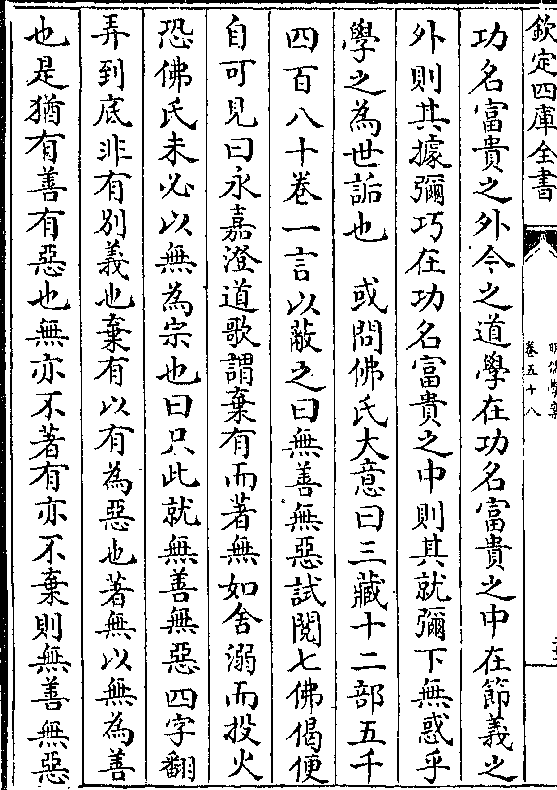 欽定四庫全書
明儒學案
卷五十八
功名富貴之外今之道學在功名富貴之中在節義之
外則其據彌巧在功名富貴之中則其就彌下無惑乎
學之為世詬也　或問佛氏大意曰三藏十二部五千
四百八十卷一言以蔽之曰無善無惡試閱七佛偈便
自可見曰永嘉證道歌謂棄有而著無如舍溺而投火
恐佛氏未必以無為宗也曰只此就無善無惡四字翻
弄到底非有別義也棄有以有為惡也著無以無為善
也是猶有善有惡也無亦不著有亦不棄則無善無惡